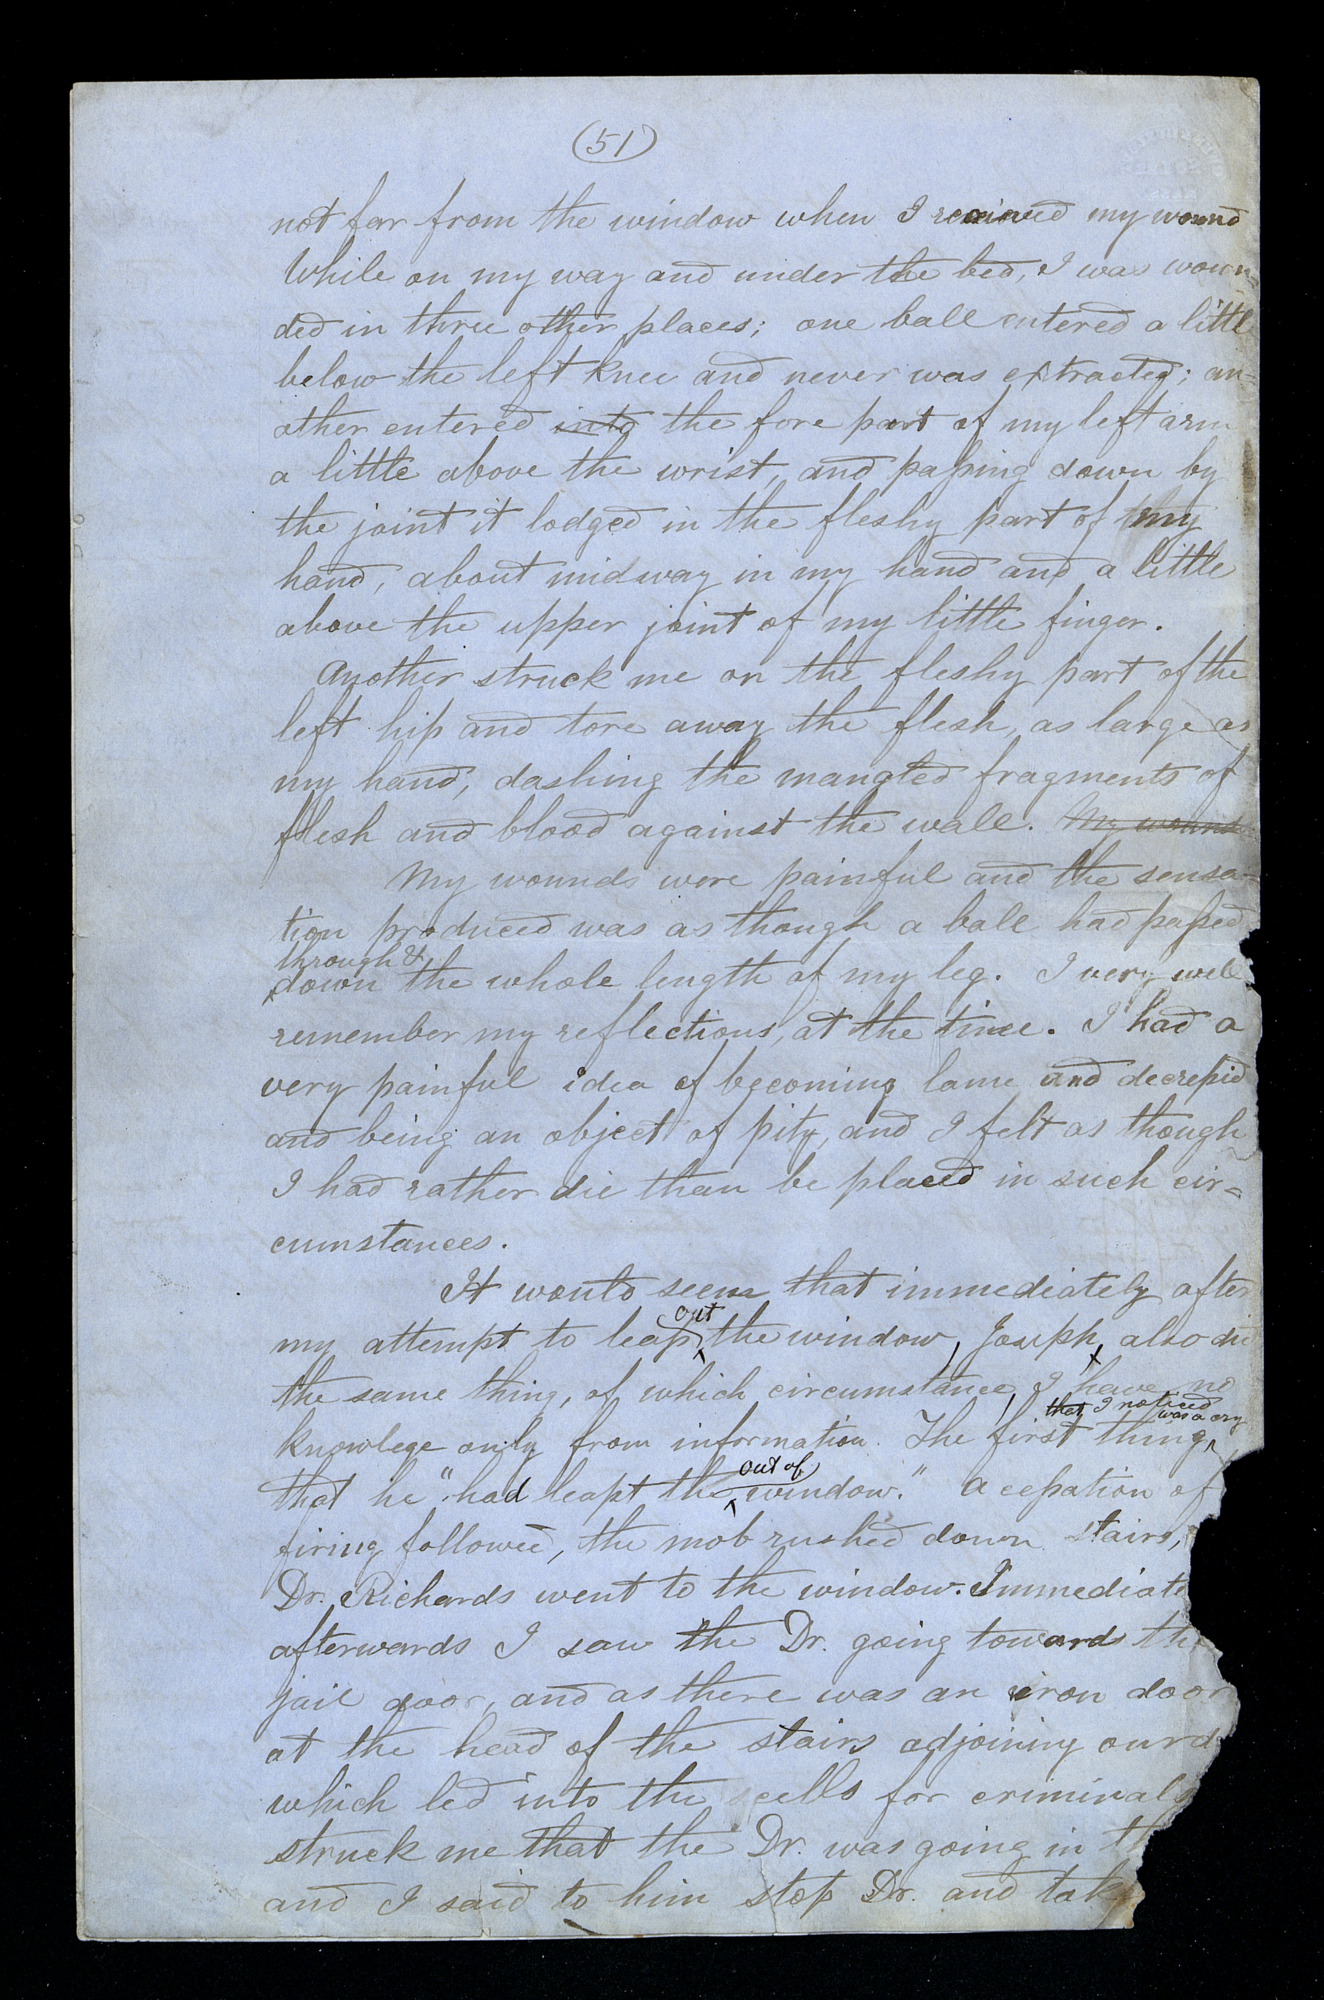 (51)
not far from the window when I received my wound
While on my way and under the bed, I was woun-
ded in three other places; one ball entered a little
below the left knee and never was extracted; an=
other entered into the fore part of my left arm
a little above the wrist, and passing down by
the joint it lodged in the fleshy part of my
hand, about midway in my hand and a little
above the upper joint of my little finger.
Another struck me on the fleshy part of the
left hip and tore away the flesh, as large as
my hand, dashing the mangled fragments of
flesh and blood against the wall. My wounds
My wounds were painful and the sensa-
tion produced was as though a ball had passed
through &
down the whole length of my leg. I very well
remember my reflections, at the time. I had a
very painful idea of becoming lame and decrepid
and being an object of pity, and I felt as though
I had rather die than be placed in such cir=
cumstances.
It would seem that immediately after
out
my attempt to leap the window, Joseph, also di
the same thing, of which circumstance, I have no
that I noticed
was a cry
knowlege only from information. The first thing
out of
that he "had leapt the window." A cessation of
firing followed, the mob rushed down stairs,
Dr. Richards went to the window. Immediate
afterwards I saw the Dr. going toward the
jail door, and as there was an iron door
at the head of the stairs adjoining our d
which led into the cells for criminals
struck me that the Dr. was going in th
and I said to him stop Dr. and tak